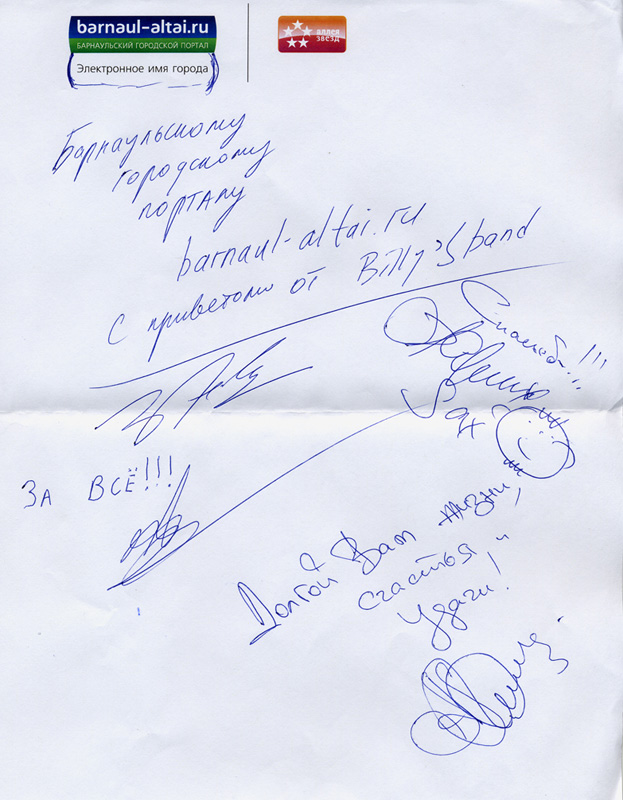 barnaul-altai.ru
БАРНАУЛЬСКИЙ ГОРОДСКОЙ ПОРТАЛ
Электронное имя города
аллея
звезд
Барнаульскому
городскому
порталу
barnaul-altai.ru
с приветом от Billy's band
Спасибо!!!
Sax
За ВСЁ!!!
Долгой Вам жизни,
счастья и
удачи!